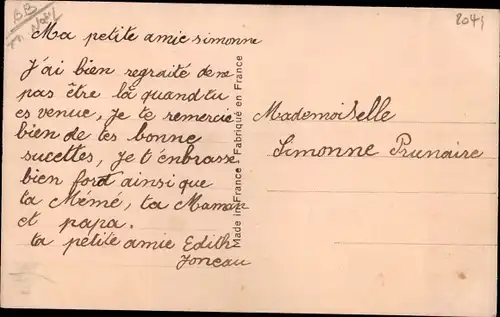 BB
2041
Ma petite amie simonne
J'ai bien regraité de ne
pas être là quand tu
es venue, Je te remercie
bien de tes bonne
sucettes, Je t'énbrasse
bien fort ainsi que
ta Mémé, ta Maman
et papa.
ta petite amie Edith
Joneau
Made in France - Fabriqué en France
Mademoiselle
Simonne Prunaire